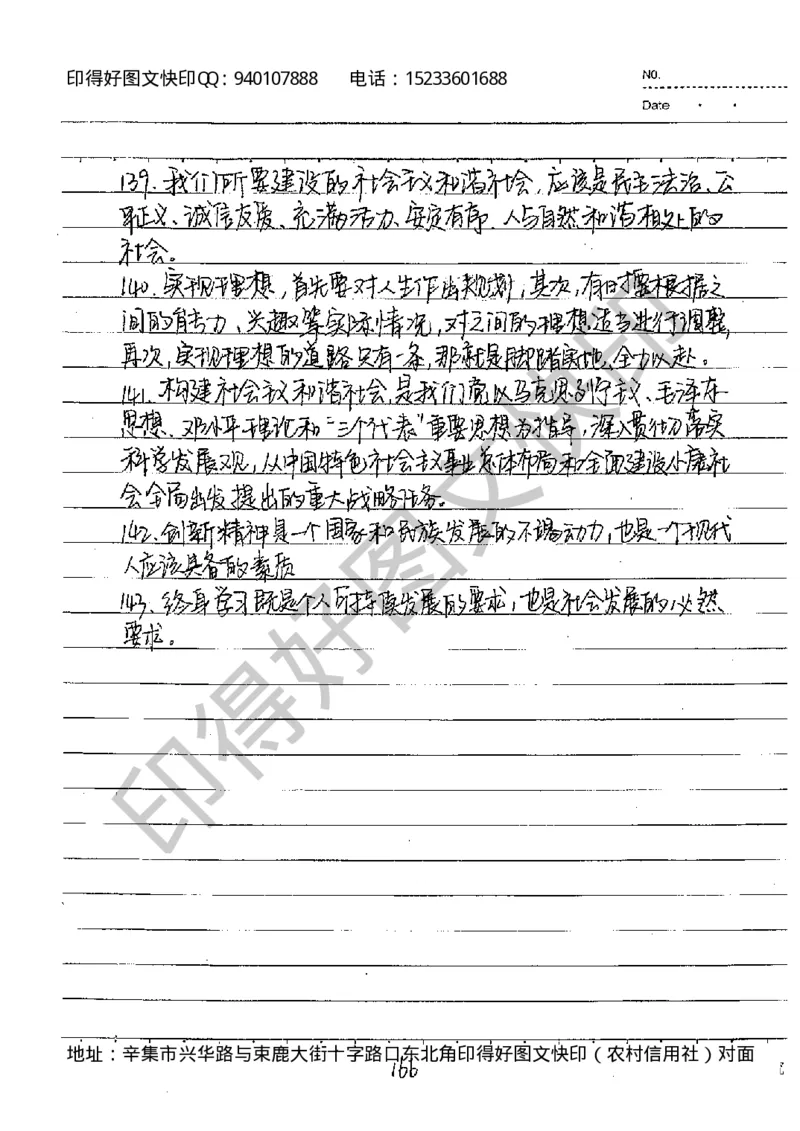 印得好图文快印QQ：940107888 电话：15233601688
NO.
Date
139、我们所要建设的社会主义和谐社会，应该是民主法治、公
平正义、诚信友爱、充满活力、安定有序、人与自然和谐相处的
社会。
140、实现理想，首先要对人生作出规划，其次，有时要根据之
间的自己能力、兴趣等实际情况，对之间的理想适当进行调整，
再次，实现理想的道路只有一条，那就是脚踏实地、全力以赴。
141、构建社会主义和谐社会，是我们党以马克思列宁主义、毛泽东
思想、邓小平理论和“三个代表”重要思想为指导，深入贯彻落实
科学发展观，从中国特色社会主义事业总体布局和全面建设小康社
会全局出发提出的重大战略任务。
142、创新精神是一个国家和民族发展的不竭动力，也是一个现代
人应该具备的素质
143、终身学习既是个人可持续发展的要求，也是社会发展的必然
要求。
印得好图文快印
地址：辛集市兴华路与束鹿大街十字路口东北角印得好图文快印（农村信用社）对面
166